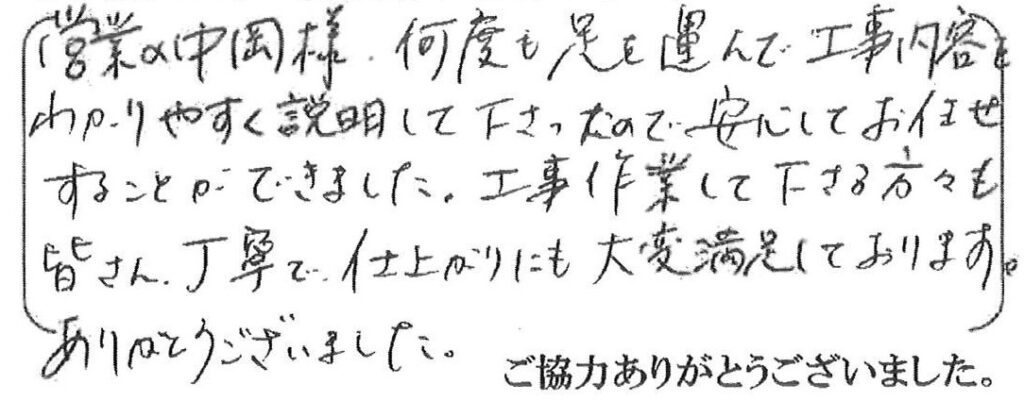 営業の中岡様、何度も足を運んで工事内容を
わかりやすく説明して下さったので安心してお任せ
することができました。工事作業して下さる方々も
皆さん、丁寧で、仕上がりにも大変満足しております。
ありがとうございました。
ご協力ありがとうございました。